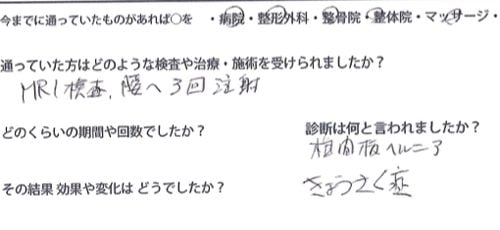 今までに通っていたものがあれば○を ・病院・整形外科・整骨院・整体院・マッサージ・
通っていた方はどのような検査や治療・施術を受けられましたか？
MRI検査、腰へ3回注射
どのくらいの期間や回数でしたか？ 診断は何と言われましたか？
椎間板ヘルニア
その結果 効果や変化は どうでしたか？ きょうさく症